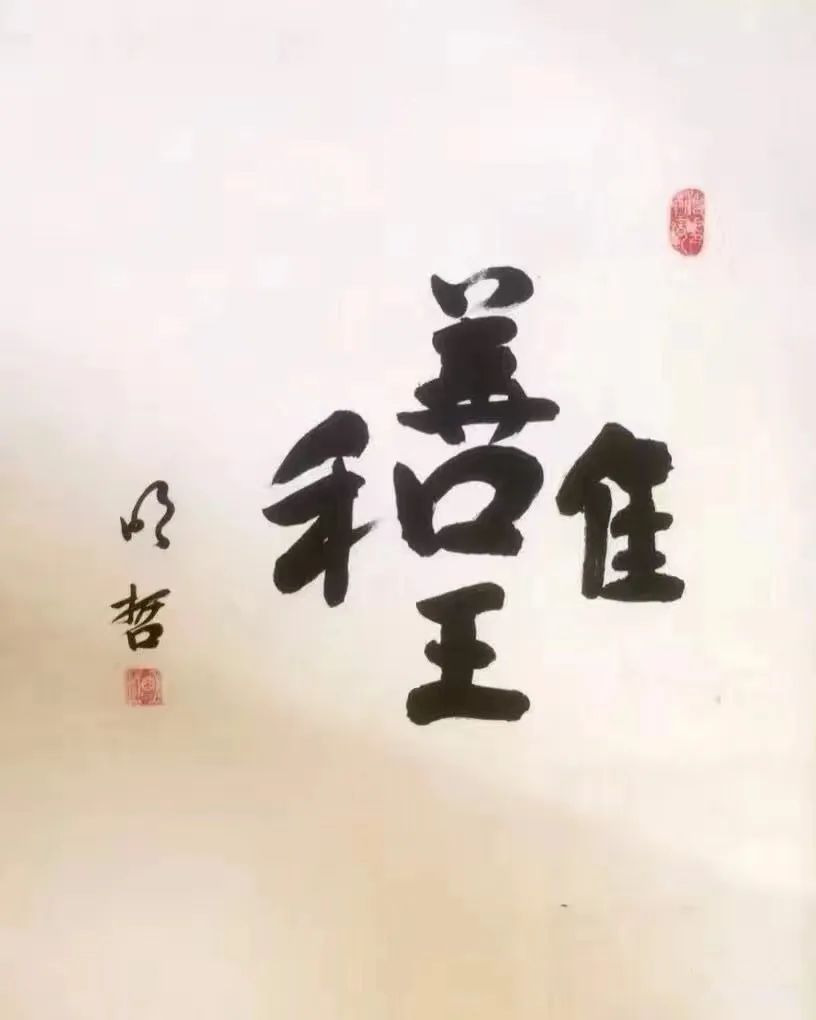 唯善呈和
明哲